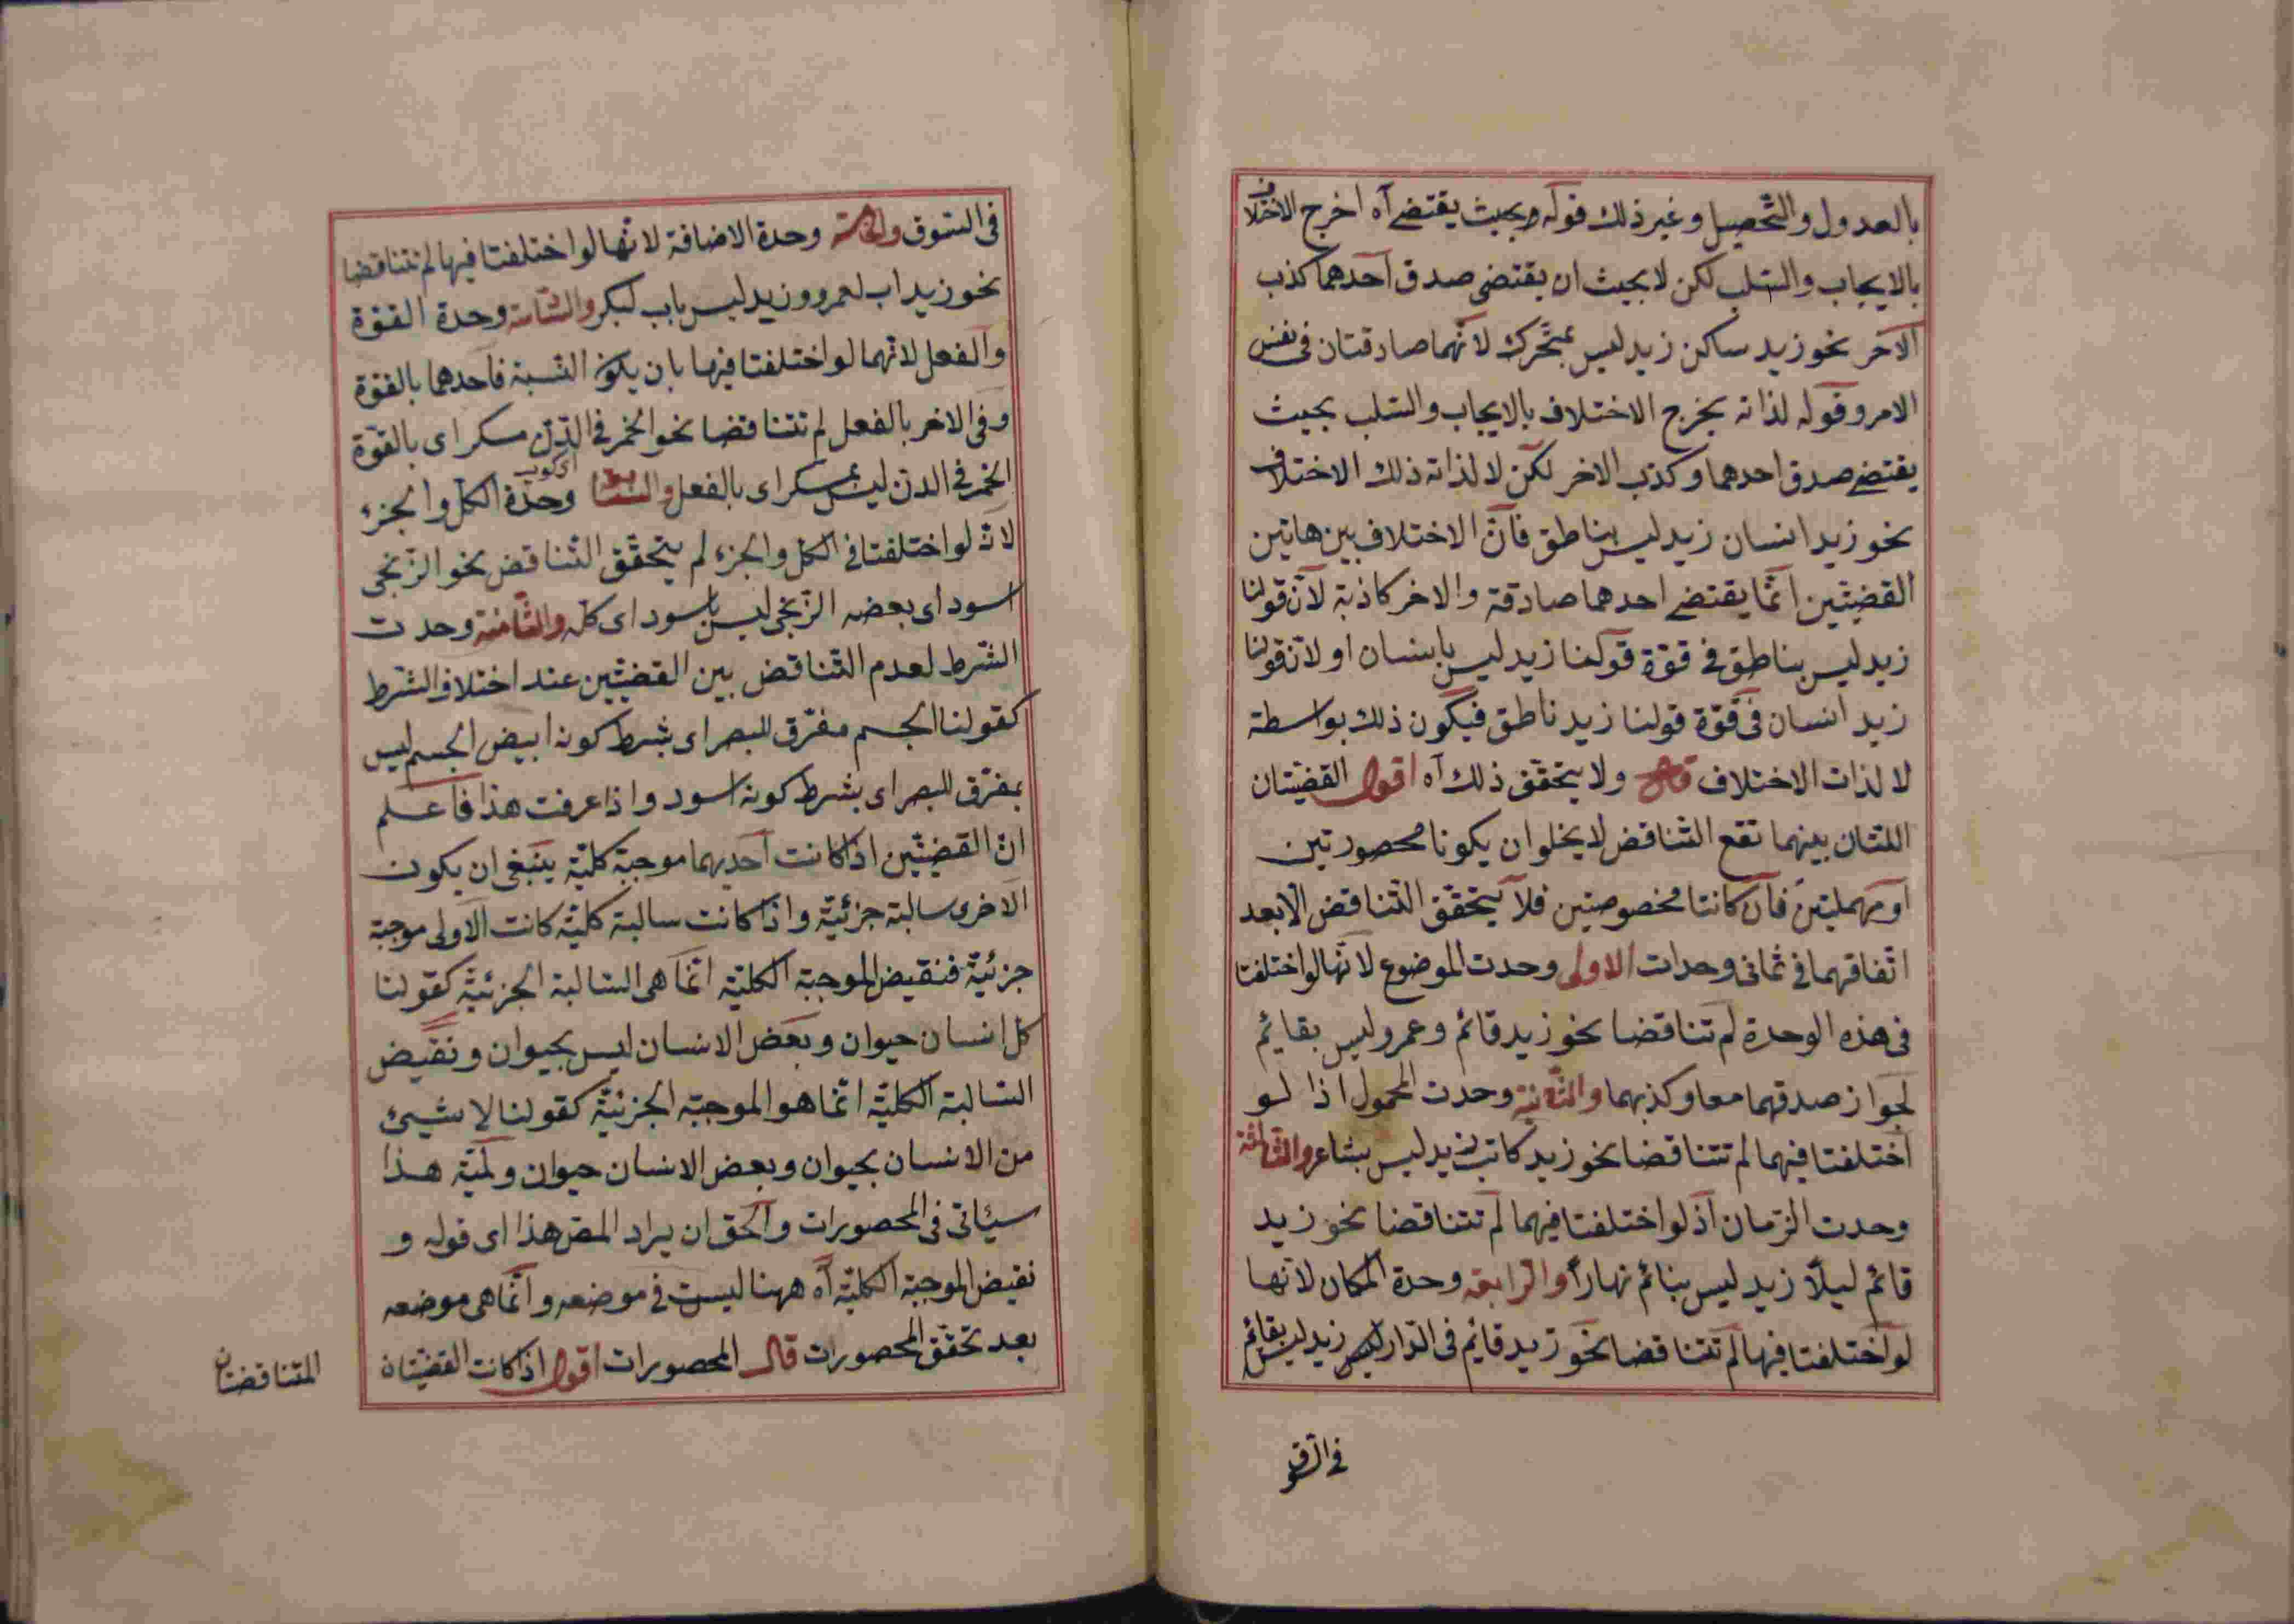 بالعدول والتحصيل وغير ذلك قوله بحيث يقتضى آه اخرج الاختلاف
بالايجاب والسلب لكن لا بحيث ان يقتضى صدق احدهما كذب
الآخر نحو زيد ساكن زيد ليس بمتحرك لانهما صادقتان فى نفس
الامر وقوله لذاته يخرج الاختلاف بالايجاب والسلب بحيث
يقتضى صدق احدهما وكذب الاخر لكن لا لذاته ذلك الاختلاف
نحو زيد انسان زيد ليس بناطق فان الاختلاف بين هاتين
القضيتين انما يقتضى احدهما صادقة والاخر كاذبة لان قولنا
زيد ليس بناطق فى قوة قولنا زيد ليس بانسان او لان قولنا
زيد انسان فى قوة قولنا زيد ناطق فيكون ذلك بواسطة
لا لذات الاختلاف قال ولا يتحقق ذلك آه اقول القضيتان
اللتان بينهما تقع التناقض لا يخلو ان يكونا محصورتين
او مهملتين فان كانتا مخصوصتين فلا يتحقق التناقض الا بعد
اتفاقهما فى ثمانى وحدات الاولى وحدت الموضوع لانها لو اختلفتا
فى هذه الوحدة لم تناقضا نحو زيد قائم وعمرو ليس بقايم
لجواز صدقهما معا وكذبهما والثانية وحدت المحمول اذا لو
اختلفتا فيهما لم تتناقضا نحو زيد كاتب زيد ليس بشاعر والثالثة
وحدت الزمان اذ لو اختلفتا فيهما لم تتناقضا نحو زيد
قائم ليلاً زيد ليس بنائم نهاراً والرابعة وحدة المكان لانها
لو اختلفتا فيها لم تتناقضا نحو زيد قايم فى الدار زيد ليس بقائم
فى السوق
فى السوق والخامسة وحدة الاضافة لانها لو اختلفتا فيها لم تتناقضا
نحو زيد اب لعمرو وزيد ليس باب لبكر والسادسة وحدة القوة
والفعل لانهما لو اختلفتا فيها بان يكون النسبة فاحدهما بالقوة
وفى الاخر بالفعل لم تتناقضا نحو الخمر فى الدن مسكر اى بالقوة
الخمر فى الدن ليس بمسكر اى بالفعل والسابعة وحدة الكل والجزء
لانه لو اختلفتا فى الكل والجزء لم يتحقق التناقض نحو الزنجى
اسود اى بعضه الزنجى ليس باسود اى كله والثامنة وحدت
الشرط لعدم التناقض بين القضيتين عند اختلاف الشرط
كقولنا الجسم مفرق للبصر اى بشرط كونه ابيض الجسم ليس
بمفرق للبصر اى بشرط كونه اسود واذا عرفت هذا فاعلم
ان القضيتين اذا كانت احديهما موجبة كلية ينبغى ان يكون
الاخرى سالبة جزئية واذا كانت سالبة كلية كانت الاولى موجبة
جزئية فنقيض الموجبة الكلية انما هى السالبة الجزئية كقولنا
كل انسان حيوان وبعض الانسان ليس بحيوان ونقيض
السالبة الكلية انما هو الموجبة الجزئية كقولنا لا شيئ
من الانسان بحيوان وبعض الانسان حيوان ولمية هذا
سيئاتى فى المحصورات والحق ان يراد المص هذا اى قوله و
نقيض الموجبة الكلية آه ههنا ليست فى موضعه وانما هى موضعه
بعد تحقق المحصورات قال المحصورات اقول اذا كانت القضيتان
المتناقضتان